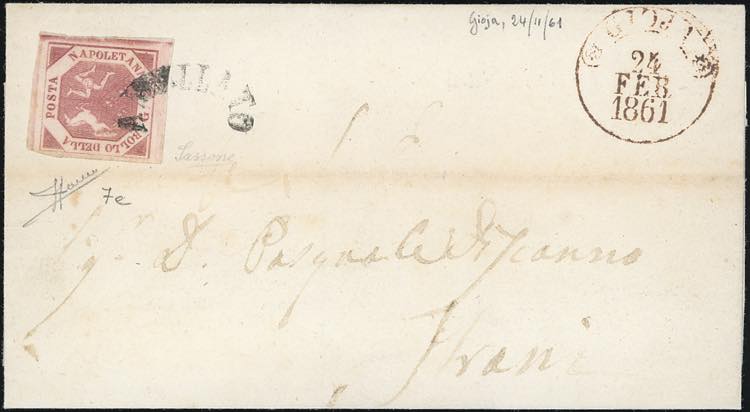 Gioja, 24/11/61
GIOJA
24
FEB
1861
POSTA NAPOLETANA
BOLLO DELLA
G
ANNULLATO
Sassone
7e
D. Pasquale di
Trani